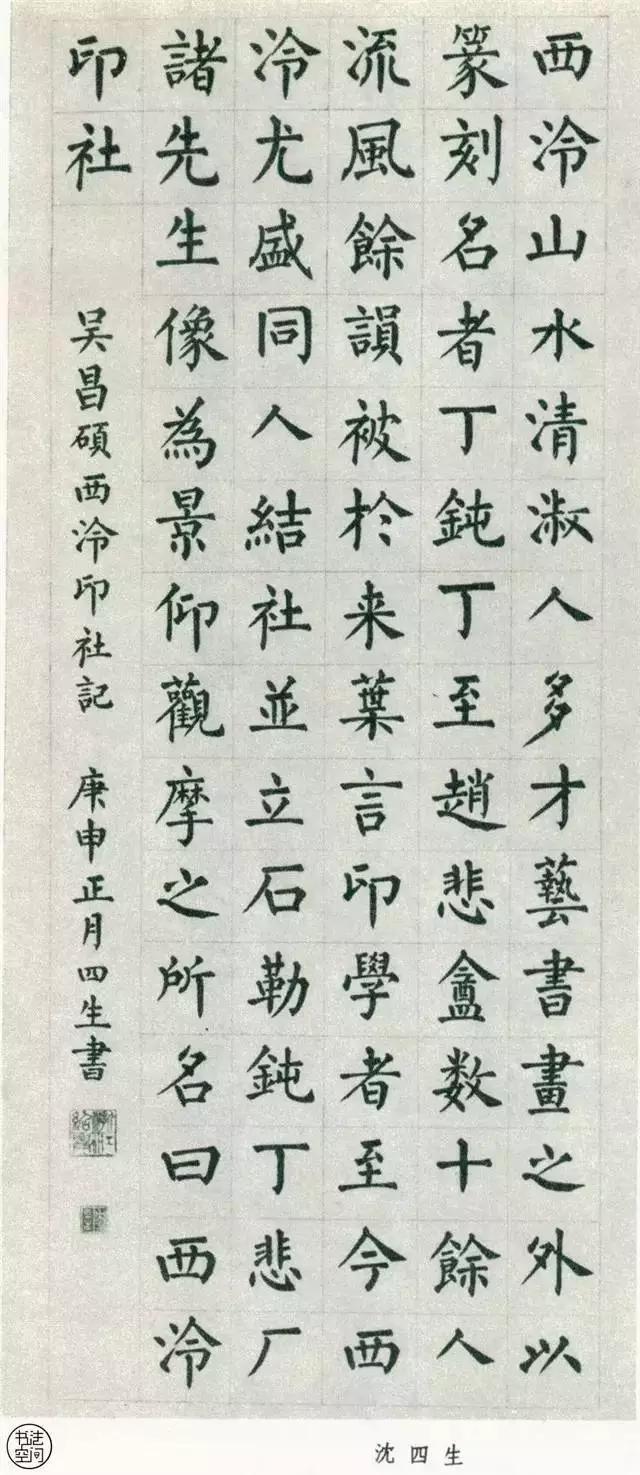 西泠山水清淑人多才藝書畫之外以
篆刻名者丁鈍丁至趙悲盦数十餘人
流風餘韻被於来葉言印學者至今西
泠尤盛同人結社並立石勒鈍丁悲厂
諸先生像為景仰觀摩之所名曰西泠
印社
吴昌碩西泠印社記 庚申正月四生書
沈四生
书法空间